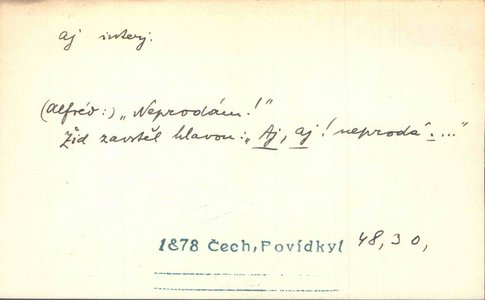 aj interj.
(Alfréd:) „Neprodám!"
Žid zavrtěl hlavou: „Aj, aj! neprodá :..."
1878 Čech, Povídky I 48, 30,